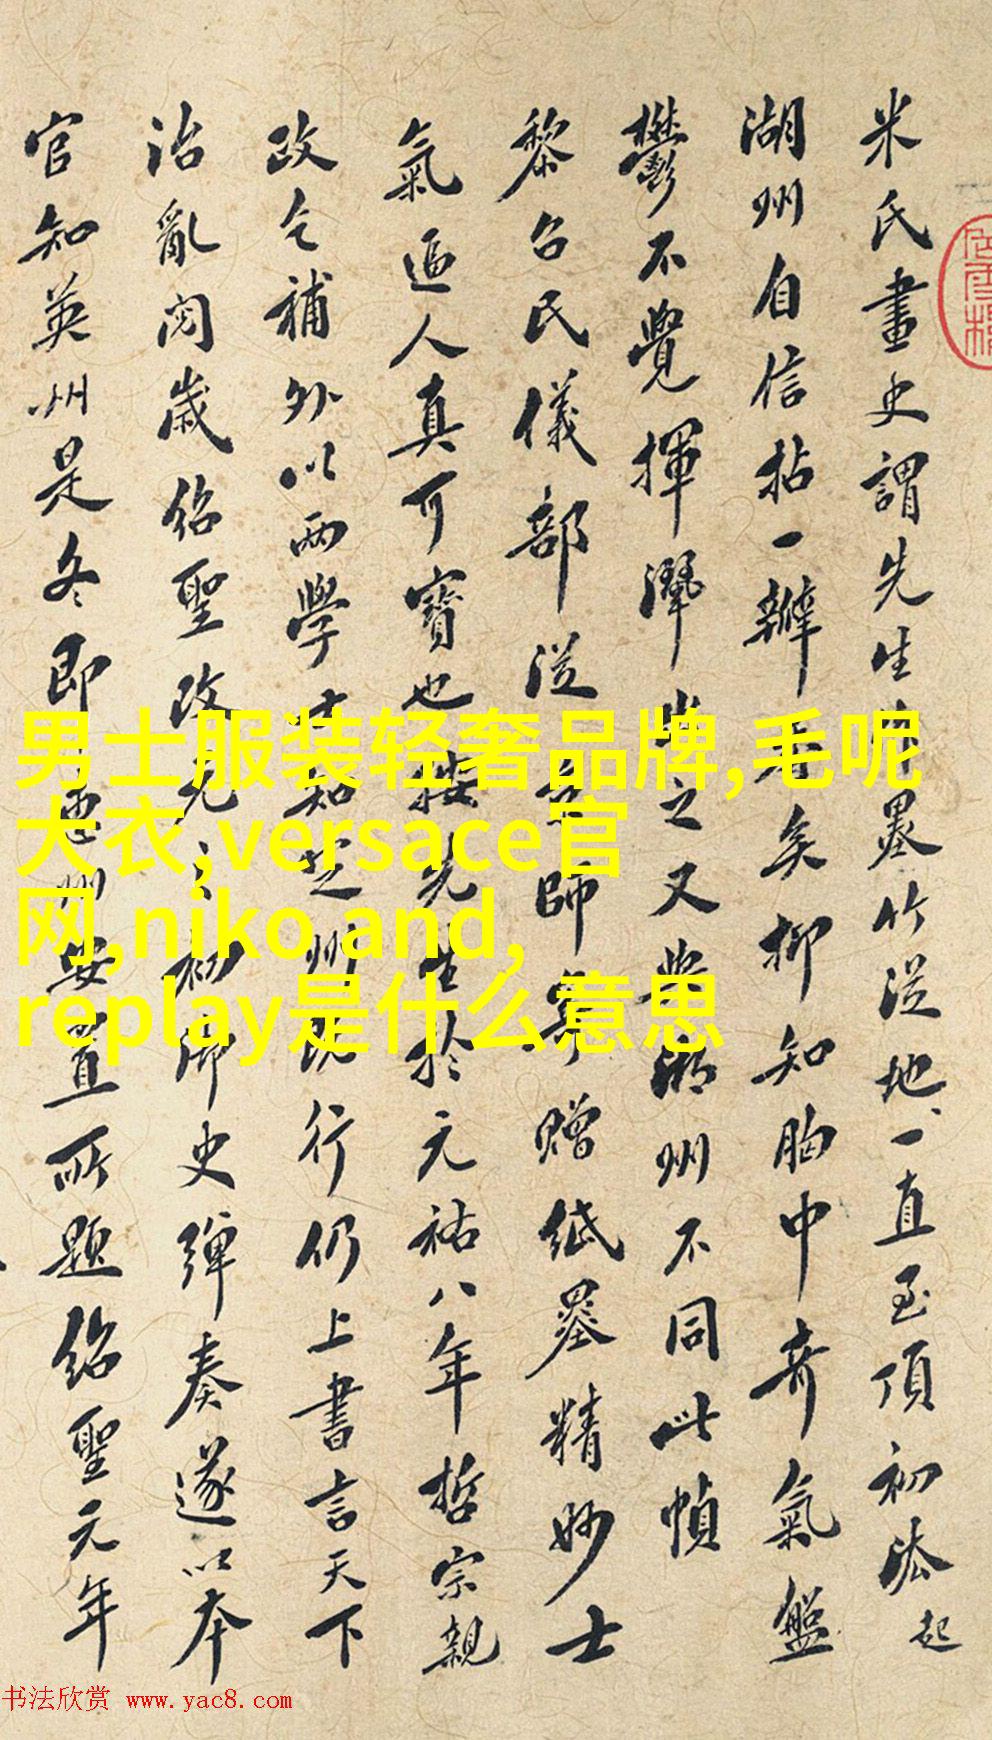 米氏畫史謂先生墨竹從地一直至頂初法起
湖州自信拈一瓣香矣抑知胸中奇氣盤
鬱不覺揮灑出之又與湖州不同此幀
黎召民儀部從京師寄贈紙墨精妙士
氣逼人真可寶也按先生於元祐八年哲宗親
政乞補外以兩學士知定州既行仍上書言天下
治亂閱歲紹聖改元之初御史彈奏遂以本
官知英州是冬即惠州安置所題紹聖元年
男士服装轻奢品牌,毛呢
大衣,versace官
网,niko and,
replay是什么意思
书法欣赏 www.yac8.com